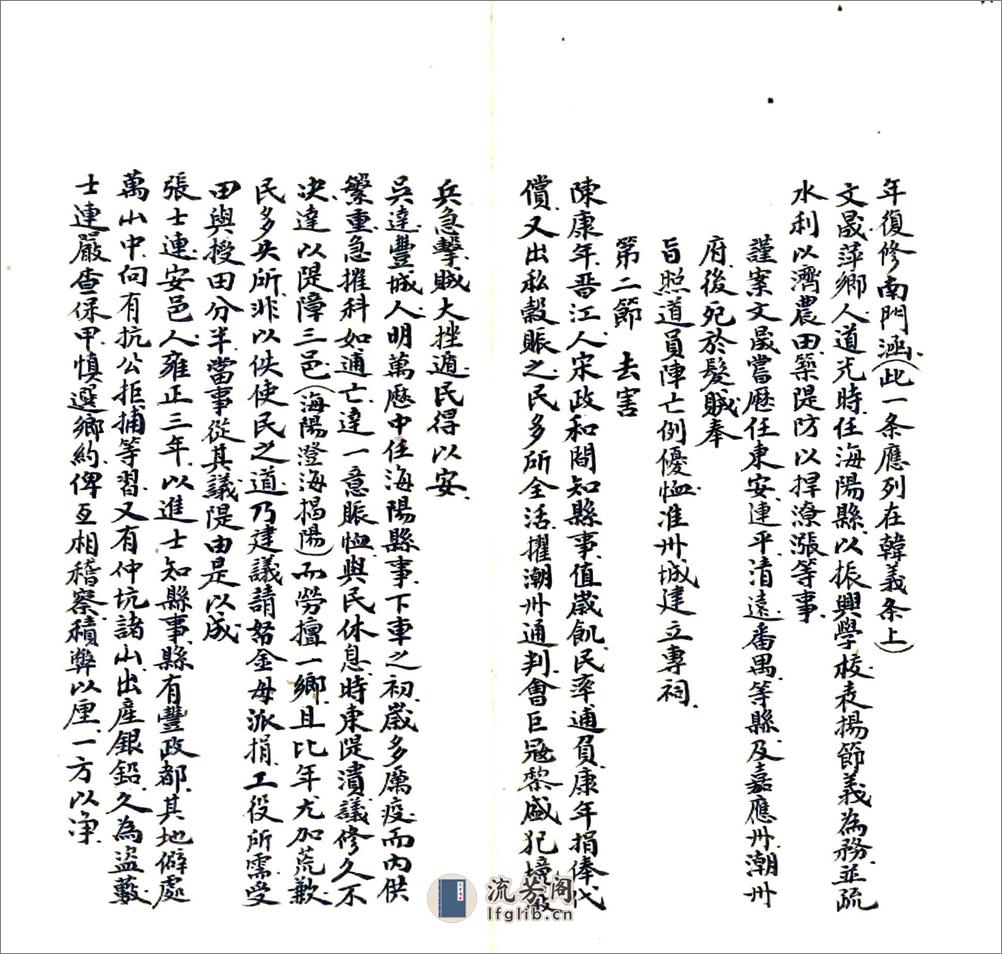 年復修南門涵(此一条應列在韓義条上)
文晟萍鄉人道光時任海陽縣以振興學校表揚節義為務並疏
水利以濟農田築隄防以捍潦漲等事
謹案文晟嘗歷任東安連平清遠番禺等縣及嘉應州潮州
府後死於髮賊奉
旨照道員陣亡例優恤准州城建立專祠
第二節 去害
陳康年晋江人宋政和間知縣事值歲飢民率逋負康年捐俸代
償又出私穀賑之民多所全活擢潮州通判會巨冦黎盛犯境
兵急擊賊大挫遁民得以安
吳達豐城人明萬歷中任海陽縣事下車之初歲多厲疫而內供
繁重急摧科如逋亡達一意賑恤與民休息時東隄潰議修久不
决達以隄障三邑(海陽澄海揭陽)而勞擅一鄉且比年尤加荒歉
民多失所非以佚使民之道乃建議請帑金毋派捐工役所需受
田與授田分半當事從其議隄由是以成
張士連安邑人雍正三年以進士知縣事縣有豐政都其地僻處
萬山中向有抗公拒捕等習又有仲坑諸山出産銀鉛久為盜藪
士連嚴查保甲慎選鄉約俾互相稽察積弊以厘一方以净
流芳阁
lfglib.cn